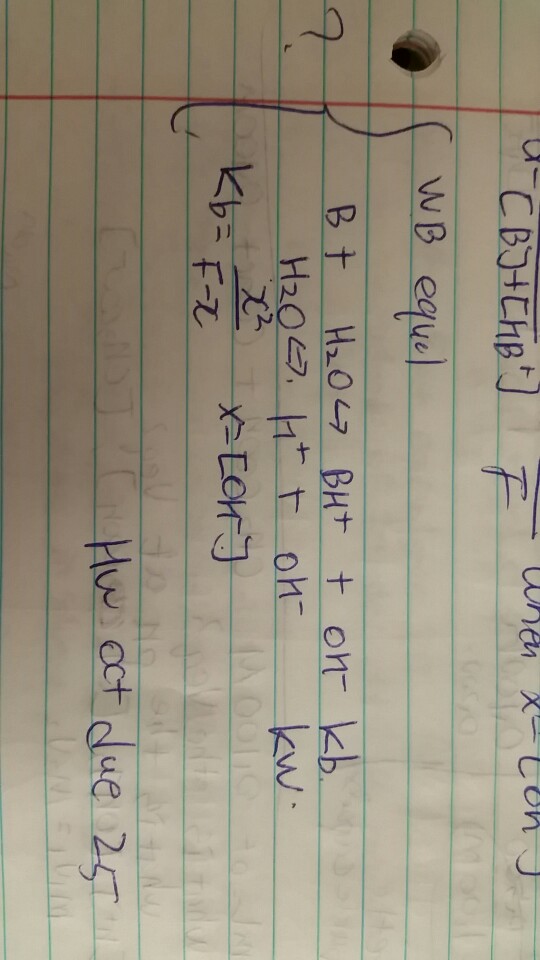 [B]+[HB⁺] F when x=[OH]
WB equil
?
B + H₂O ↔ BH⁺ + OH⁻ Kb
H₂O ↔ H⁺ + OH⁻ Kw.
Kb = x² / F-x x=[OH⁻]
HW oct due 25